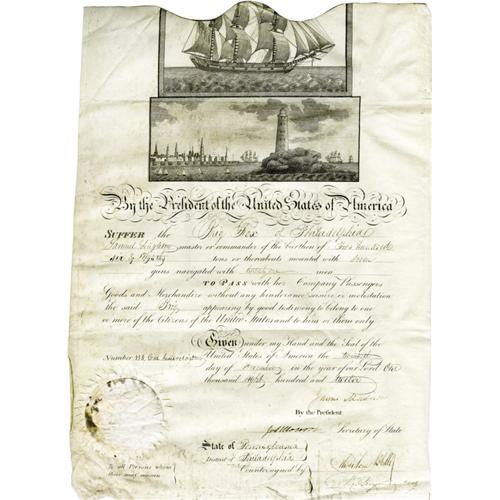 By the President of the United States of America
SUFFER the Brig Fox of Philadelphia
Samuel master or commander of the burthen of Two hundred
tons or thereabouts mounted with
guns navigated with men
TO PASS with her Company Passengers
Goods and Merchandize without any hinderance seisure or molestation
the said Brig appearing by good testimony to belong to one
or more of the Citizens of the United States and to him or them only
Given under my Hand and the Seal of the
Number United States of America the
day of in the year of our Lord One
thousand eight hundred and
James Madison
By the President
Jas Monroe Secretary of State
State of Pennsylvania
District of Philadelphia
Countersigned by
To all Persons whom
these may concern